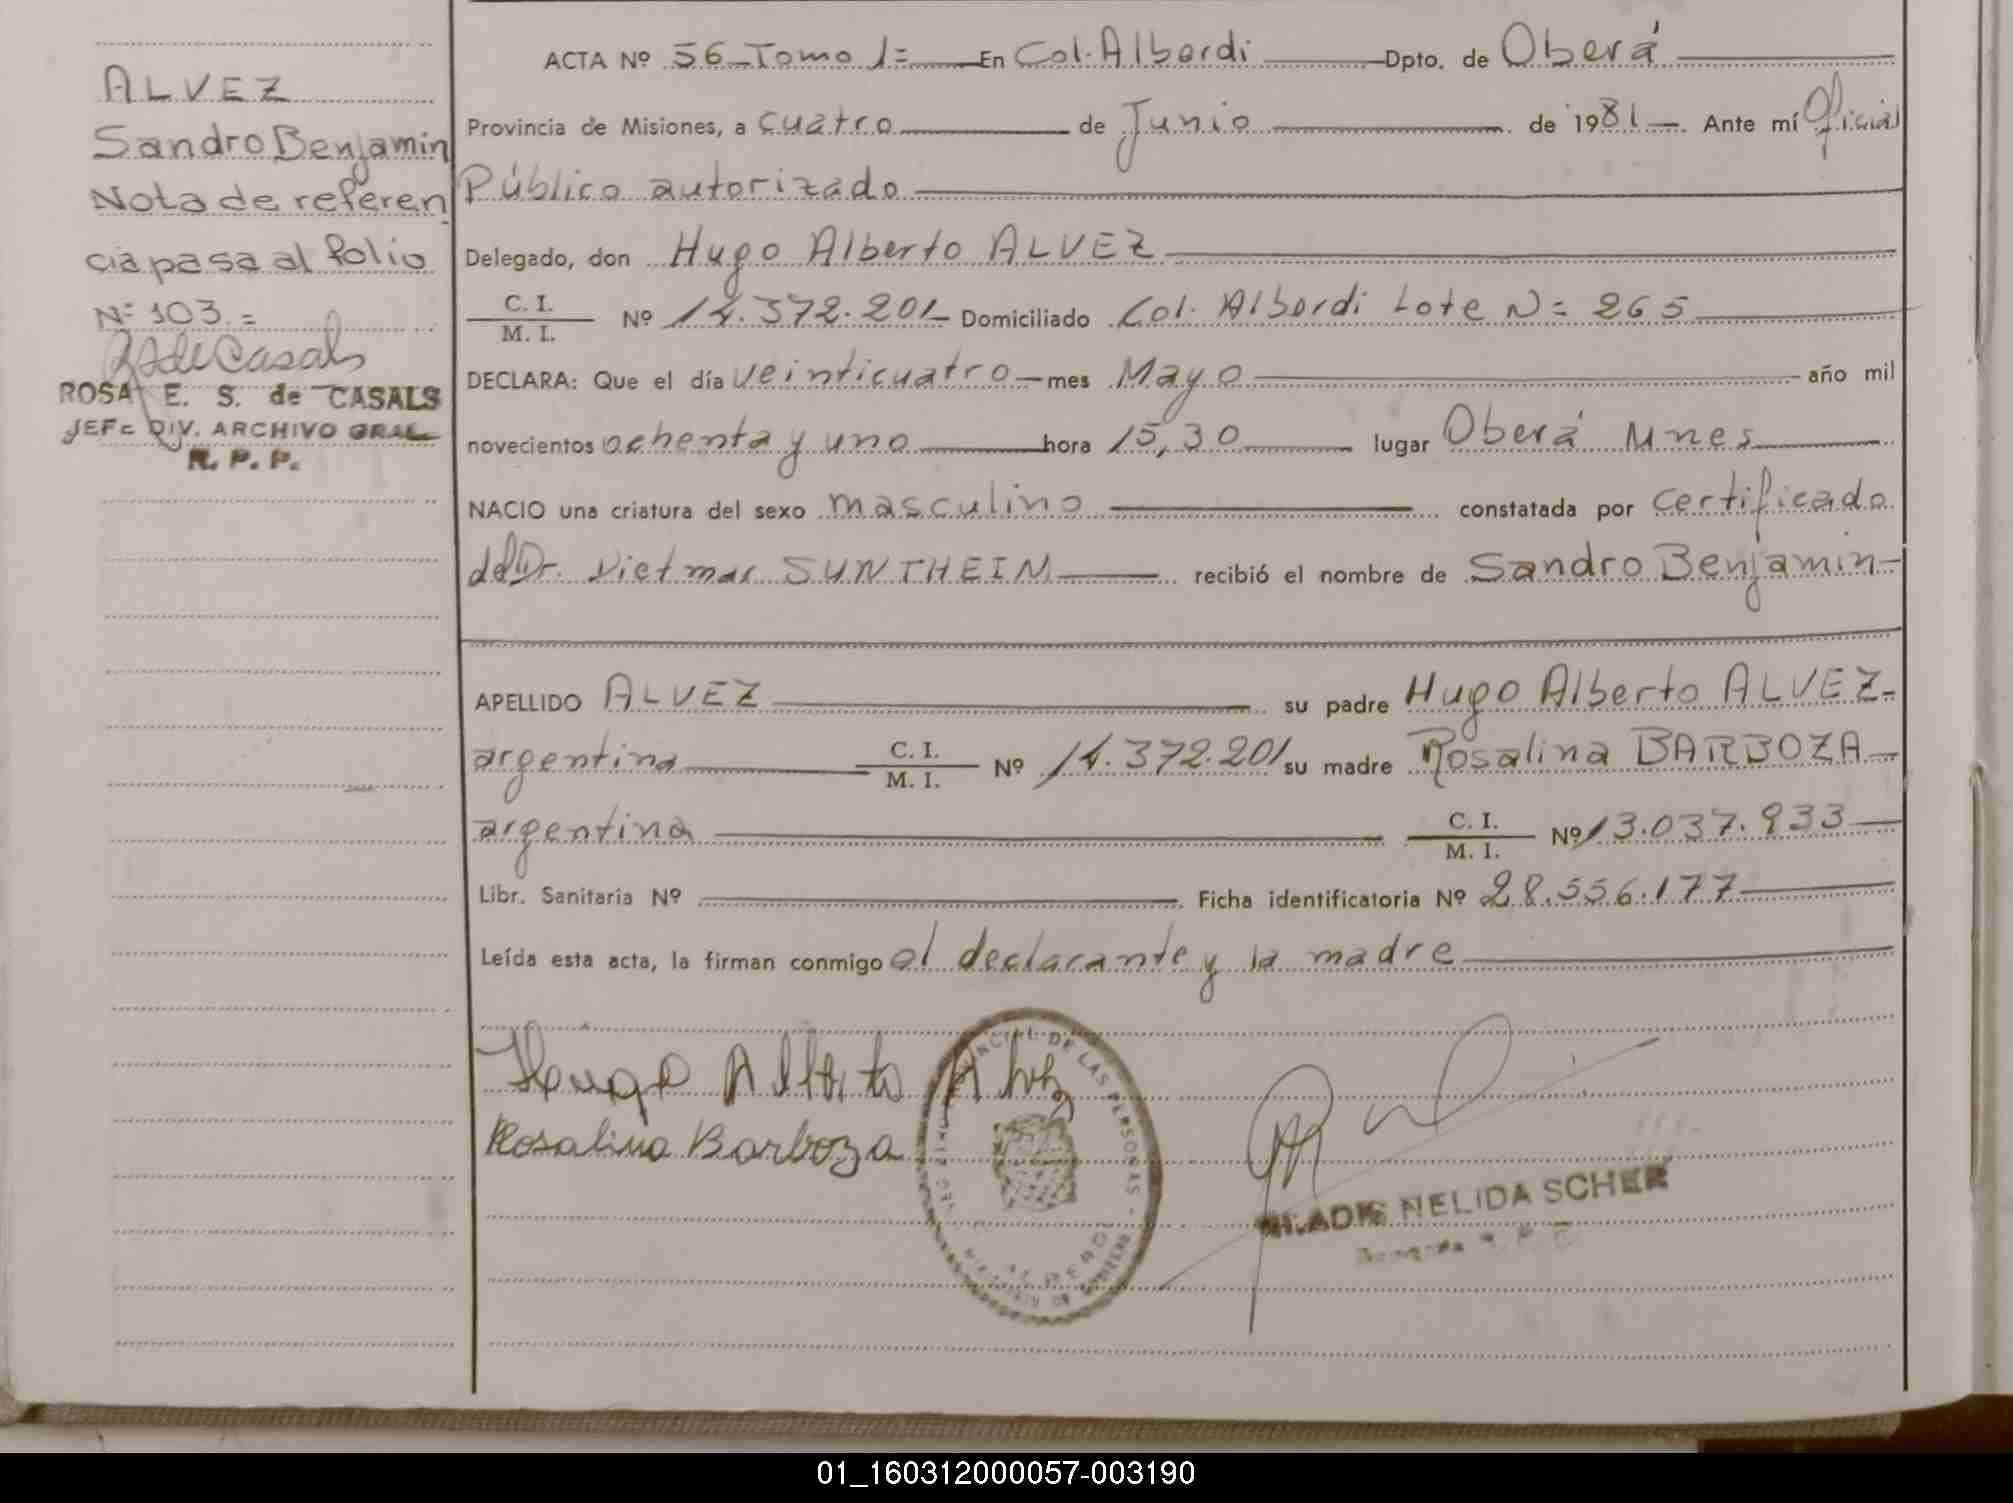 ALVEZ
Sandro Benjamin
Nota de referen
cia pasa al folio
Nº 103.=
RSdeCasals
ROSA E. S. de CASALS
JEFE DIV. ARCHIVO GRAL
R. P. P.
ACTA Nº 56 - Tomo 1= En Col. Alberdi Dpto. de Oberá
Provincia de Misiones, a cuatro de Junio de 1981 Ante mí Oficial
Público autorizado
Delegado, don Hugo Alberto ALVEZ
C. I.
M. I. Nº 14.372.201 Domiciliado Col. Alberdi Lote N= 265
DECLARA: Que el día veinticuatro mes Mayo año mil
novecientos ochenta y uno hora 15,30 lugar Oberá Mnes
NACIO una criatura del sexo masculino constatada por certificado
del Dr. Dietmar SUNTHEIM recibió el nombre de Sandro Benjamin
APELLIDO ALVEZ su padre Hugo Alberto ALVEZ
argentina C. I.
M. I. Nº 14.372.201 su madre Rosalina BARBOZA
argentina C. I.
M. I. Nº 13.037.933
Libr. Sanitaria Nº Ficha identificatoria Nº 28.556.177
Leída esta acta, la firman conmigo el declarante y la madre
Hugo Alberto Alvez
Rosalina Barboza
PROVINCIAL DE LAS PERSONAS
MINISTERIO DE GOBIERNO
GLADIS NELIDA SCHER
01_160312000057-003190